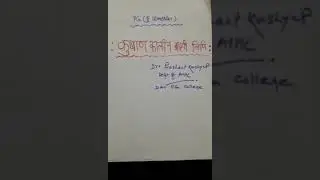 PG (II Semester)
: कुषाण कालीन ब्राह्मी लिपि :
Dr. Prashant Kashyap
Dept of AIHC
DAV PG College